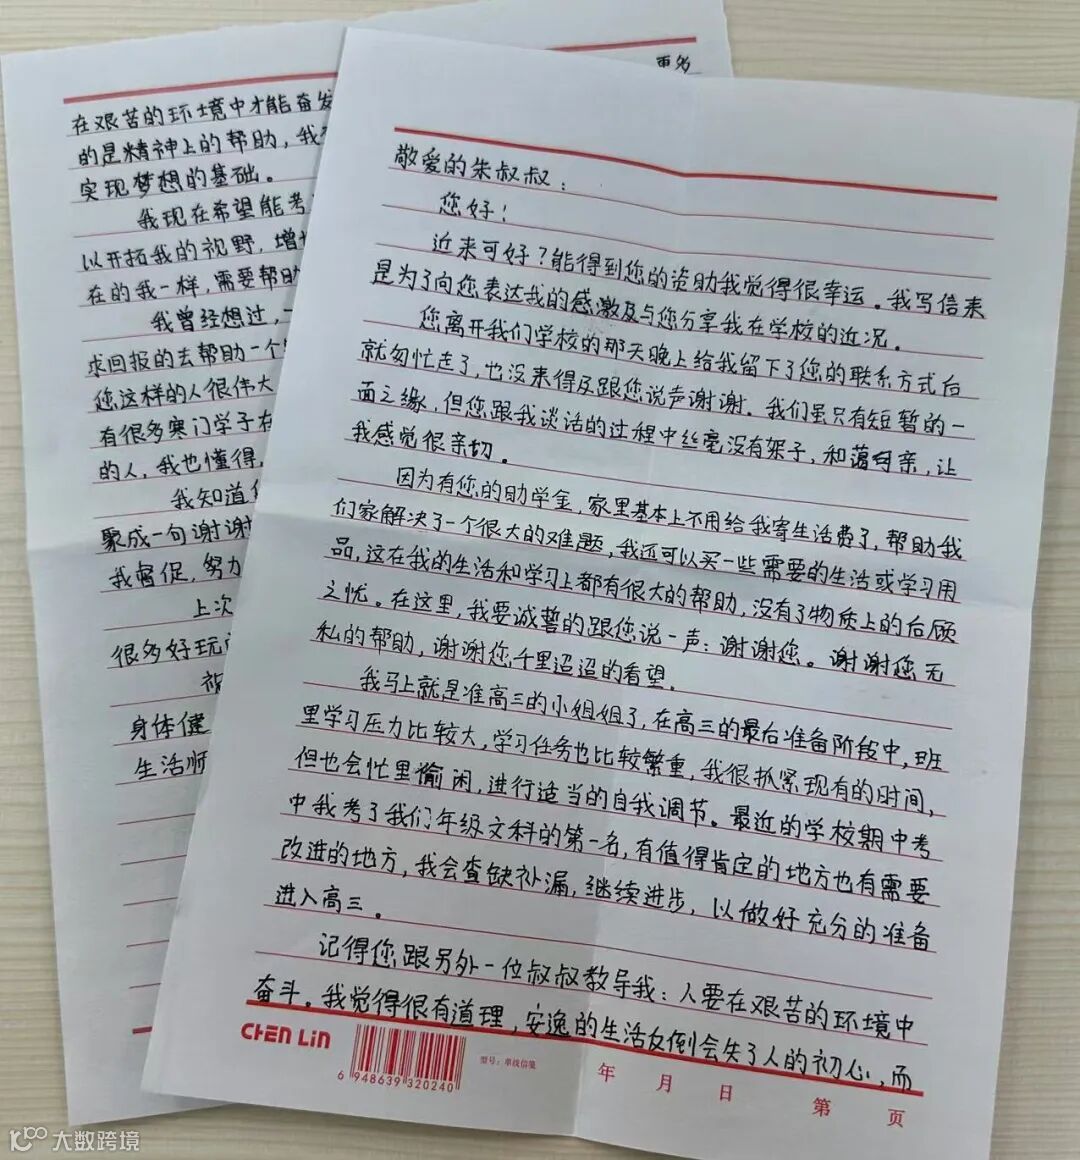 敬爱的朱叔叔：
您好！
近来可好？能得到您的资助我觉得很幸运。我写信来
是为了向您表达我的感激及与您分享我在学校的近况。
您离开我们学校的那天晚上给我留下了您的联系方式后
就匆忙走了，也没来得及跟您说声谢谢。我们虽只有短暂的一
面之缘，但您跟我谈话的过程中丝毫没有架子，和蔼可亲，让
我感觉很亲切。
因为有您的助学金，家里基本上不用给我寄生活费了，帮助我
们家解决了一个很大的难题，我还可以买一些需要的生活或学习用
品，这在我的生活和学习上都有很大的帮助，没有了物质上的后顾
之忧。在这里，我要诚挚的跟您说一声：谢谢您。谢谢您无
私的帮助，谢谢您千里迢迢的看望。
我马上就是准高三的小姐姐了，在高三的最后准备阶段中，班
里学习压力比较大，学习任务也比较繁重，我很抓紧现有的时间，
但也会忙里偷闲，进行适当的自我调节。最近的学校期中考
中我考了我们年级文科的第一名，有值得肯定的地方也有需要
改进的地方，我会查缺补漏，继续进步，以做好充分的准备
进入高三。
记得您跟另外一位叔叔教导我：人要在艰苦的环境中
奋斗。我觉得很有道理，安逸的生活反倒会失了人的初心，而
CHEN LIN
6 948639 320240
型号：单线信笺
年 月 日 第 页
更多
在艰苦的环境中才能奋发
的是精神上的帮助，我
实现梦想的基础。
我现在希望能考
以开拓我的视野，增
在的我一样，需要帮助
我曾经想过，一
求回报的去帮助一个
您这样的人很伟大
有很多寒门学子在
的人，我也懂得，
我知道
聚成一句谢谢
我督促，努力
上次
很多好玩
祝
身体健
生活顺
大数跨境